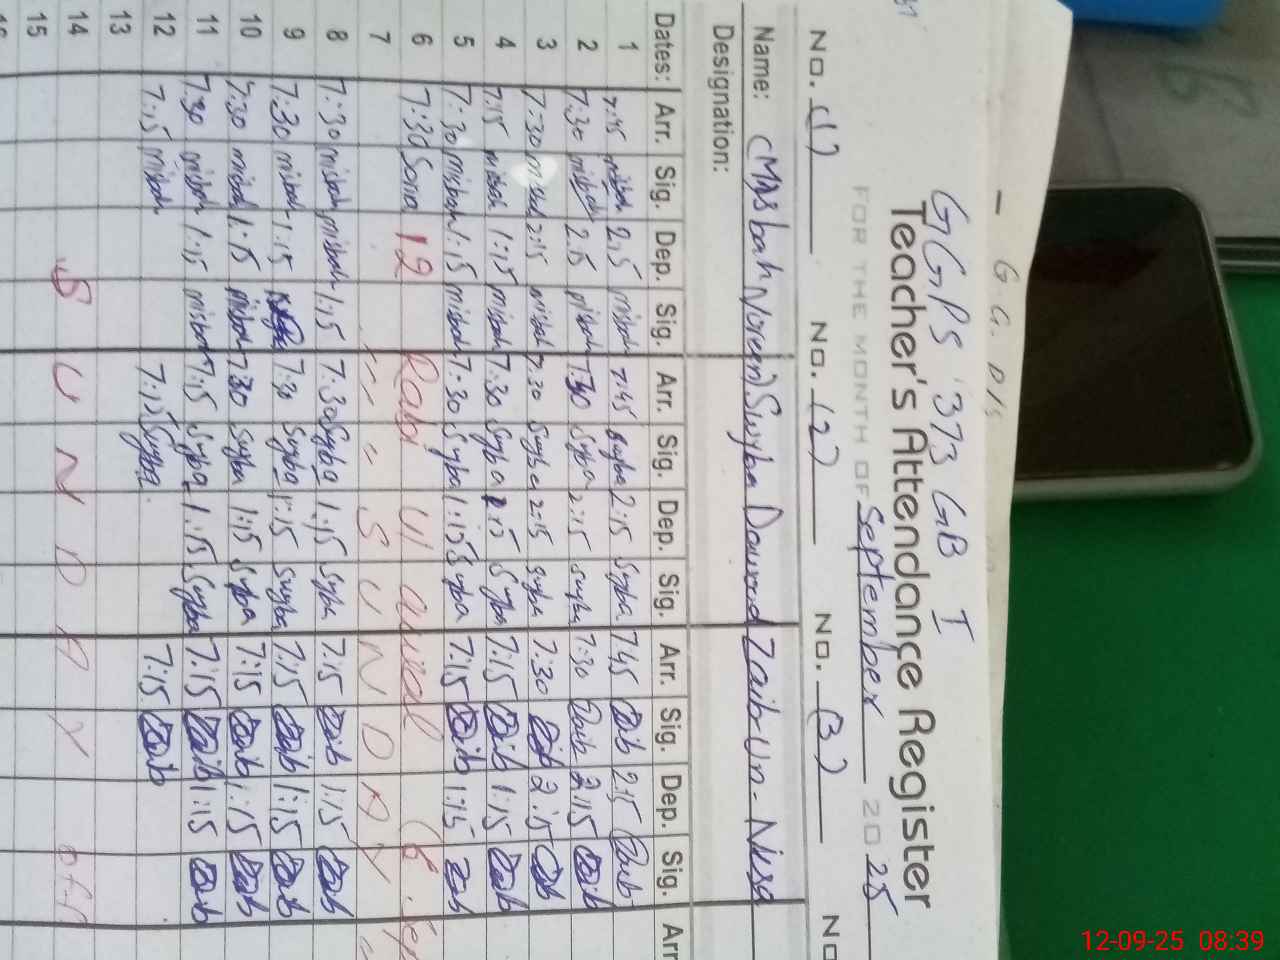 G.G. D/S
GGPS 373 GB I
Teacher's Attendance Register
FOR THE MONTH OF September 2025
No. (1) No. (2) No. (3) No
Name: (Misbah Noreen) Suyba Dawood Zaib-Un-Nisa
Designation:
Dates: Arr. Sig. Dep. Sig. Arr. Sig. Dep. Sig. Arr. Sig. Dep. Sig. Arr
1 7:45 misbah 2:15 misbah 7:45 Suyba 2:15 Suyba 7:45 Zaib 2:15 Zaib
2 7:30 misbah 2:15 misbah 7:30 Suyba 2:15 Suyba 7:30 Zaib 2:15 Zaib
3 7:30 misbah 2:15 misbah 7:30 Suyba 2:15 Suyba 7:30 Zaib 2:15 Zaib
4 7:15 misbah 1:15 misbah 7:30 Suyba 1:15 Suyba 7:15 Zaib 1:15 Zaib
5 7:30 misbah 1:15 misbah 7:30 Suyba 1:15 Suyba 7:15 Zaib 1:15 Zaib
6 7:30 Sona 12 Rabi Ul awal (6 Sep
7 " " S U N D A Y "
8 7:30 misbah misbah 1:15 7:30 Suyba 1:15 Suyba 7:15 Zaib 1:15 Zaib
9 7:30 misbah 1:15 7:30 Suyba 1:15 Suyba 7:15 Zaib 1:15 Zaib
10 7:30 misbah 1:15 misbah 7:30 Suyba 1:15 Suyba 7:15 Zaib 1:15 Zaib
11 7:30 misbah 1:15 misbah 7:15 Suyba 1:15 Suyba 7:15 Zaib 1:15 Zaib
12 7:15 misbah 7:15 Suyba 7:15 Zaib
13
14 S U N D A Y off
15
16
12-09-25 08:39